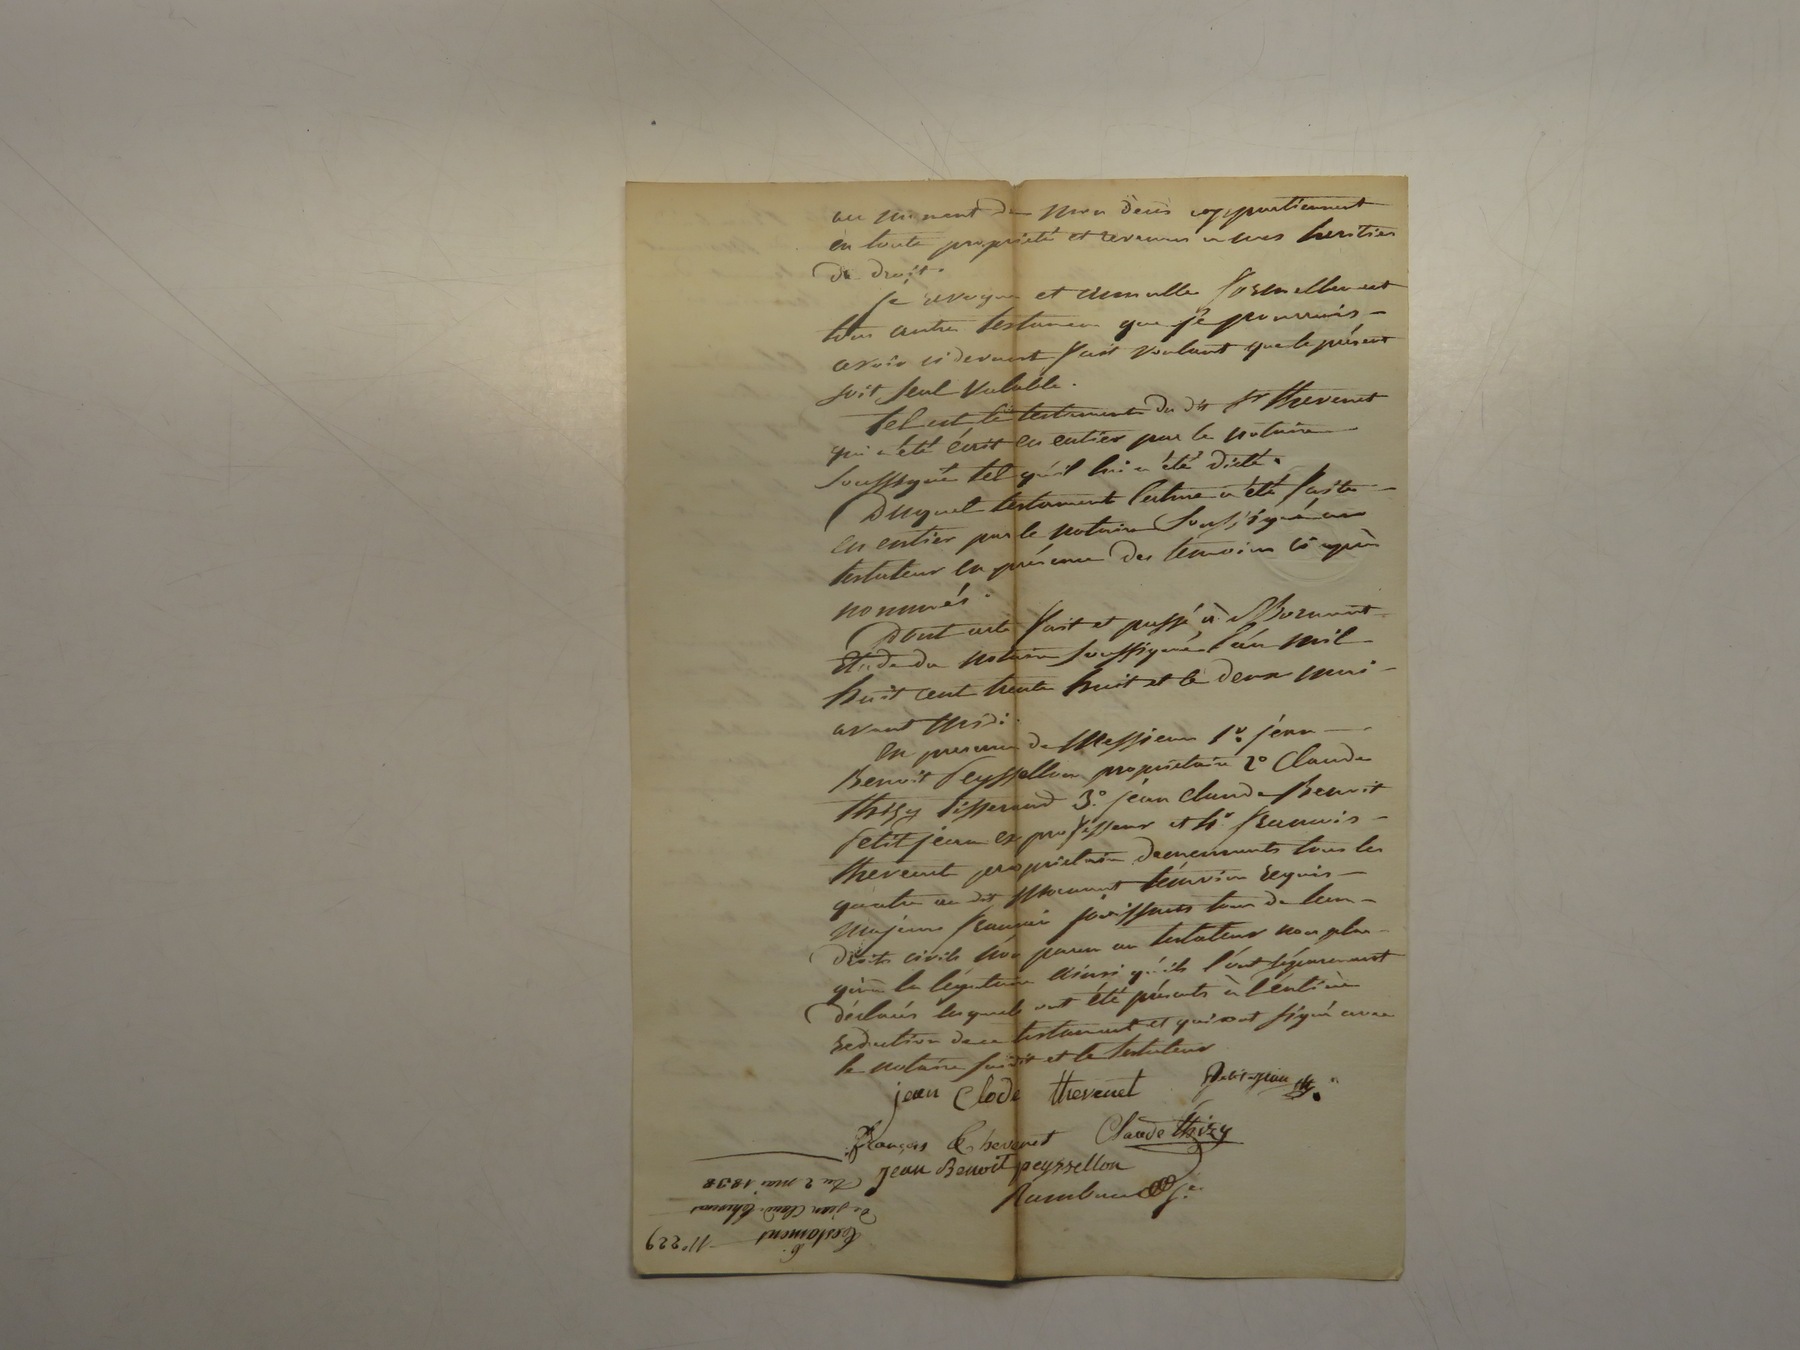 au moment de mon décès appartiennent
en toute propriété et revenus a mes heritiers
de droit.
Je revoque et annulle formellement
tous autres testamens que je pourrais
avoir ci devant fait voulant que le présent
soit seul valable.
Tel est le testament du dit Sr thevenet
qui a été écrit en entier par le notaire
soussigné tel qu'il lui a été dicté.
Duquel testament lecture a été faite
en entier par le notaire soussigné au
testateur en présence des temoins ci après
nommés.
Dont acte fait et passé à Mornant
Etude du notaire soussigné l'an mil
huit cent trente huit et le deux mai
avant midi.
En presence de Messieurs 1º jean
Benoit Peyssellon propriétaire 2º Claude
thizy tisserand 3º jean Claude Benoit
Petitjean ex professeur et 4º françois
thevenet propriétaire demeurants tous les
quatre au dit Mornant témoins requis
majeurs français jouissants tous de leurs
droits civils non parens au testateur non plus
qu'a la légataire ainsi qu'ils l'ont séparement
déclarés lesquels ont été présents à l'entière
redaction de ce testament et qui ont signé avec
le notaire susdit et le testateur
jean Clode thevenet Petit-Jean
françois thevenet Claude thizy
jean Benoit peyssellon
Du 2 mai 1838
de jean Claude thevenet
testament
Nº 229